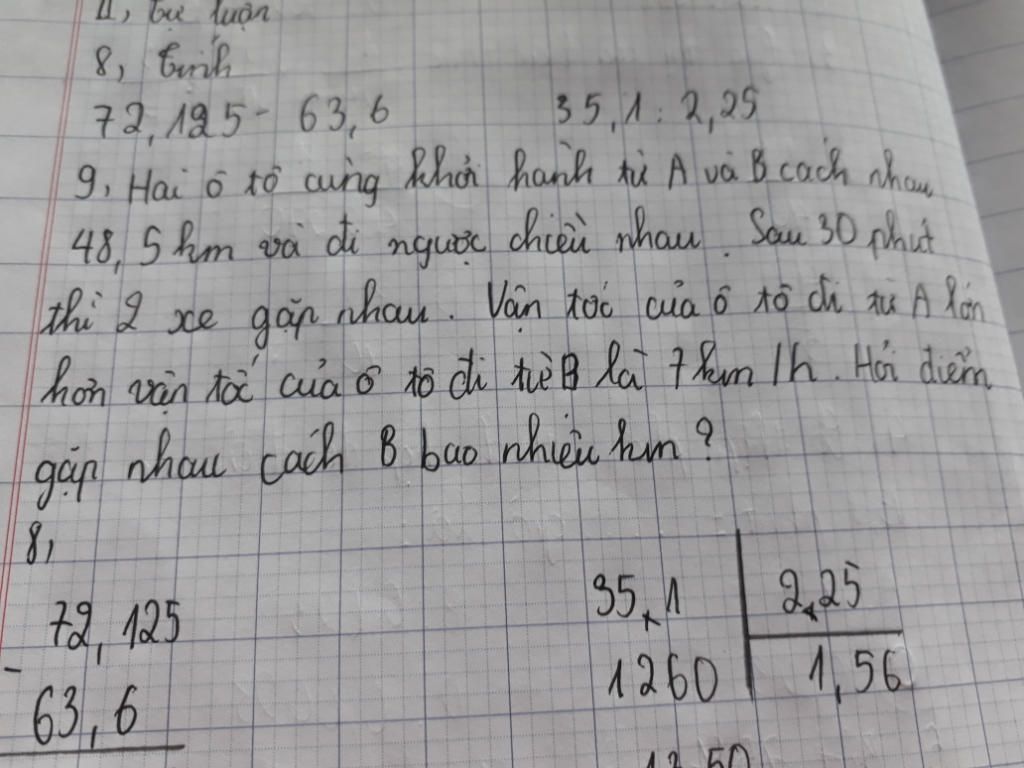 II, Tự luận
8, Tính
72,125 - 63,6 35,1 : 2,25
9, Hai ô tô cùng khởi hành từ A và B cách nhau
48,5 km và đi ngược chiều nhau. Sau 30 phút
thì 2 xe gặp nhau. Vận tốc của ô tô đi từ A lớn
hơn vận tốc của ô tô đi từ B là 7 km/h. Hỏi điểm
gặp nhau cách B bao nhiêu km?
8,
72,125 35,1 2,25
- 63,6 1260 1,56
1350